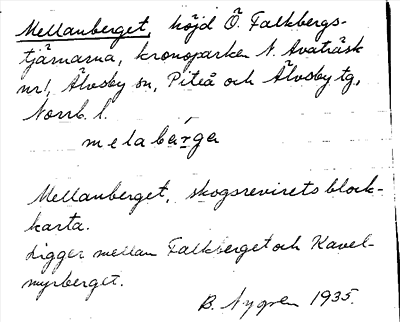 Mellanberget, höjd Ö. Falkbergs-
tjärnarna, kronoparken N. Avaträsk
nr 1, Älvsby sn, Piteå och Älvsby tg,
Norrb. l.
melabárga
Mellanberget, skogsrevirets block-
karta.
Ligger mellan Falkberget och Kavel-
myrberget.
B. Nygren 1935.